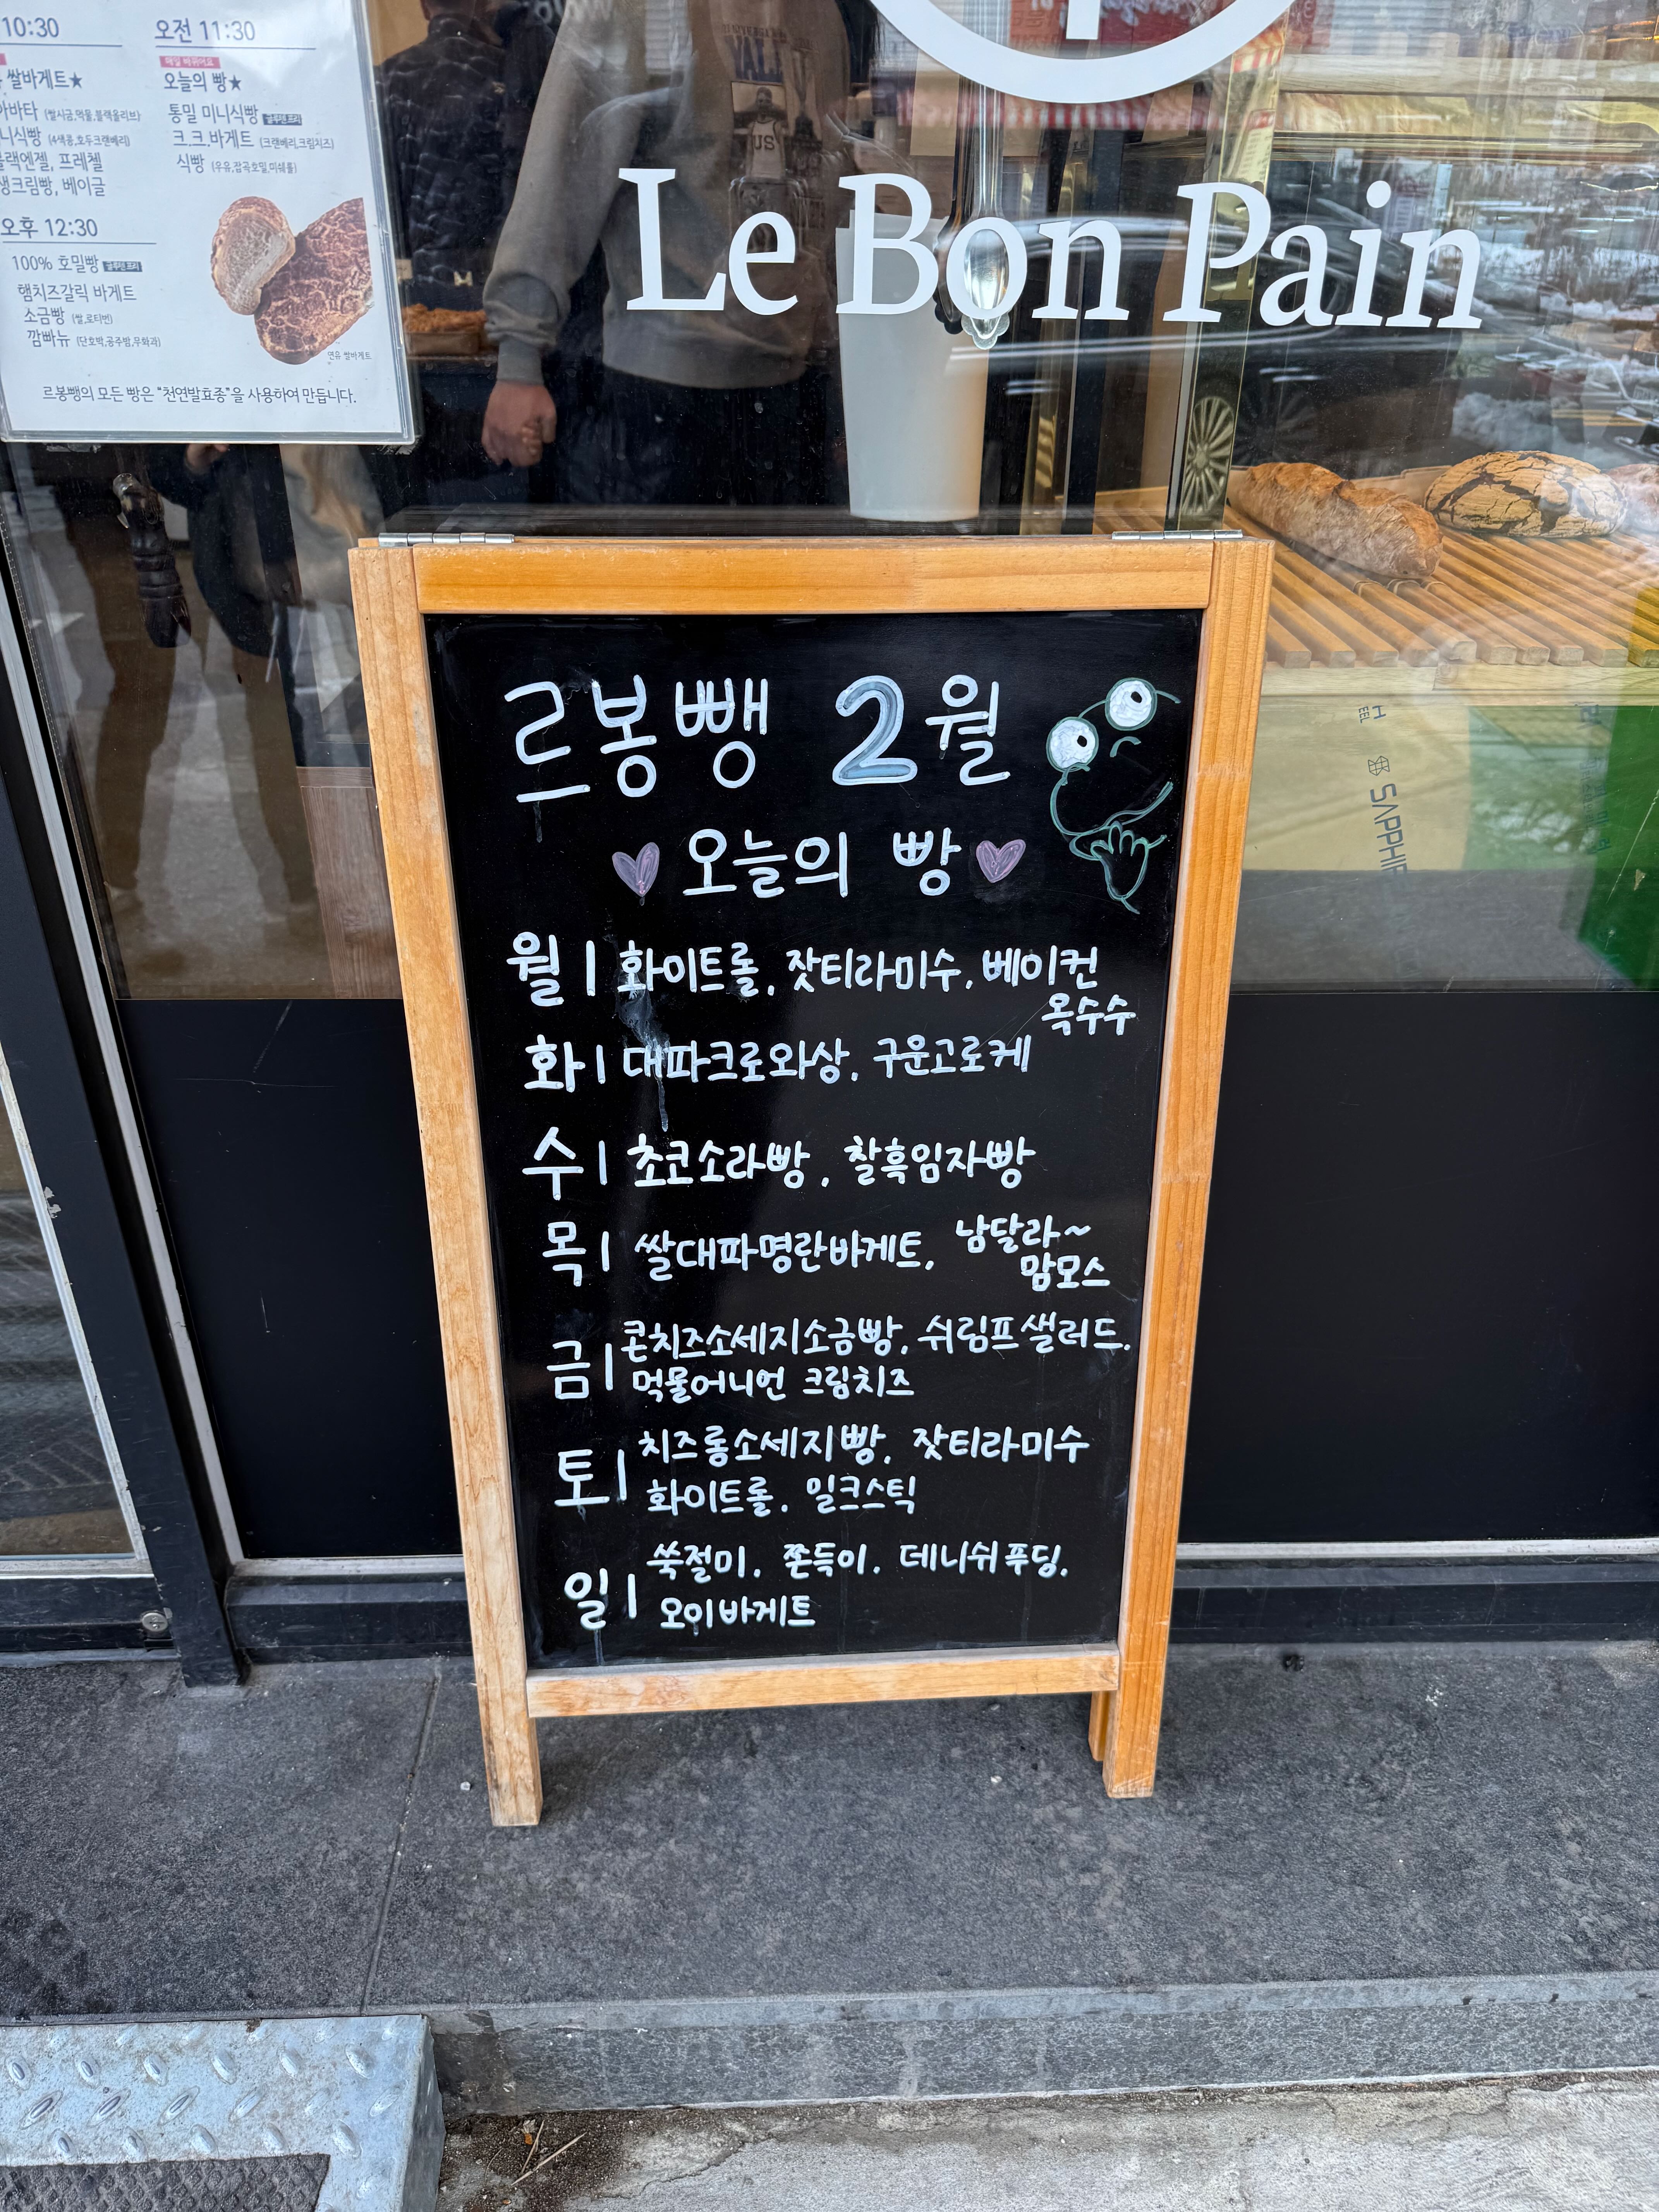 10:30
쌀바게트★
아바타 (쌀시금,먹물,블랙올리브)
니식빵 (4색콩,호두크랜베리)
블랙엔젤, 프레첼
생크림빵, 베이글
오전 11:30
매일 바뀌어요
오늘의 빵★
통밀 미니식빵
크.크.바게트 (크랜베리,크림치즈)
식빵 (우유,잡곡호밀,미쉐롤)
오후 12:30
100% 호밀빵
햄치즈갈릭 바게트
소금빵 (쌀,로티번)
깜빠뉴 (단호박,공주밤,무화과)
연유 쌀바게트
르봉뺑의 모든 빵은 "천연발효종"을 사용하여 만듭니다.
Le Bon Pain
SAPPHIR
르봉뺑 2월
오늘의 빵
월 | 화이트롤, 잣티라미수, 베이컨
옥수수
화 | 대파크로와상, 구운고로케
수 | 초코소라빵, 찰흑임자빵
목 | 쌀대파명란바게트, 남달라~
맘모스
금 | 콘치즈소세지소금빵, 쉬림프샐러드,
먹물어니언 크림치즈
토 | 치즈롱소세지빵, 잣티라미수
화이트롤, 밀크스틱
일 | 쑥절미, 쫀득이, 데니쉬푸딩,
오이바게트